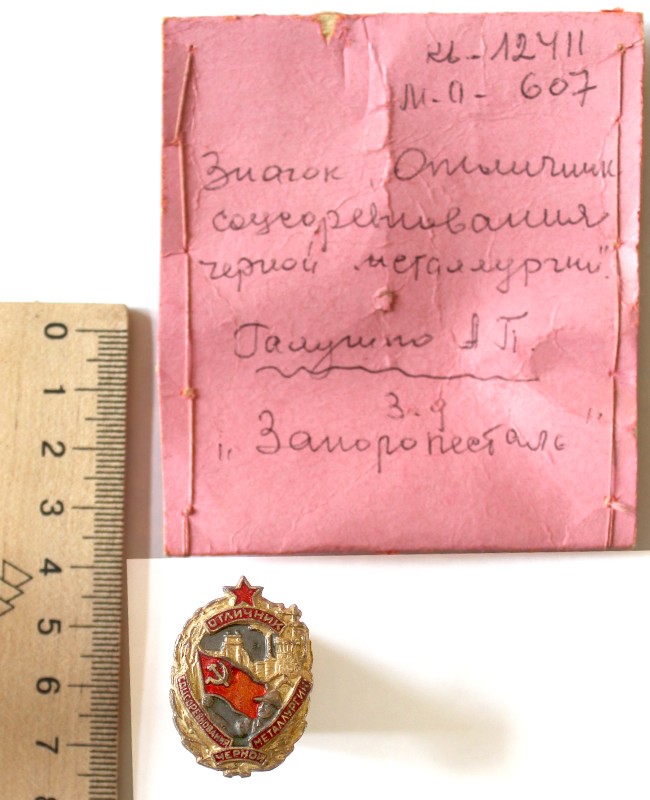 кв-12411
М-п- 607
Значок „Отличник
соцсоревнования
черной металлургии".
Галушко А П.
З-д
„Запорожсталь"
0
1
2
3
4
5
6
7
ОТЛИЧНИК
СОЦСОРЕВНОВАНИЯ
МЕТАЛЛУРГИИ
ЧЕРНОЙ